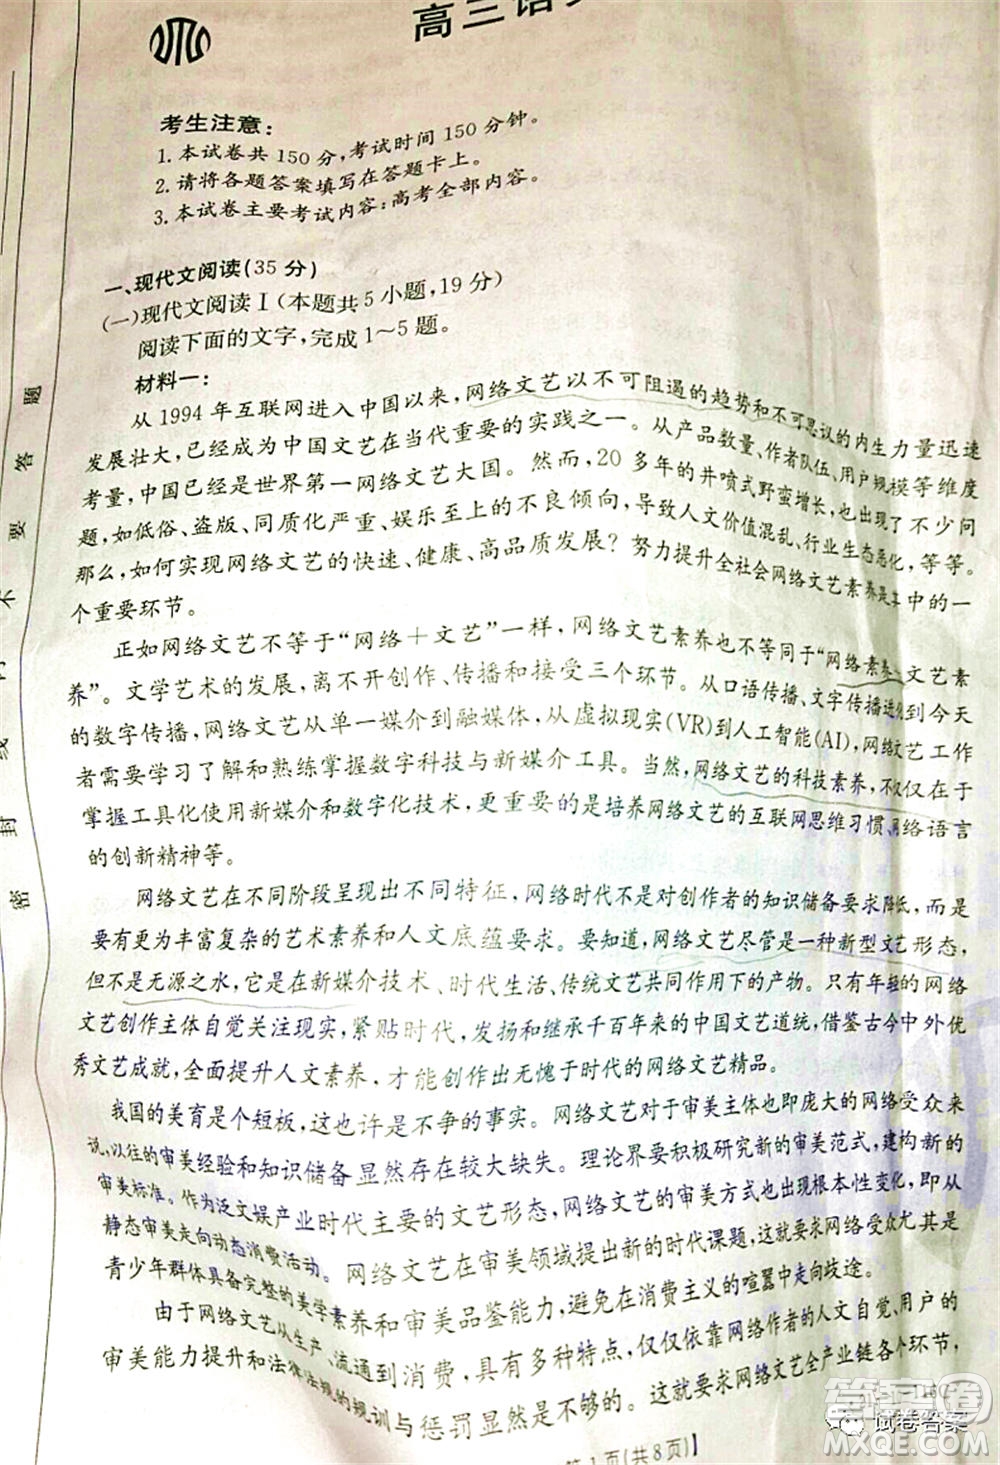 高三语
考生注意:
1.本试卷共150分,考试时间150分钟。
2.请将各题答案填写在答题卡上。
3.本试卷主要考试内容:高考全部内容。
一、现代文阅读(35分)
(一)现代文阅读Ⅰ(本题共5小题,19分)
阅读下面的文字,完成1~5题。
材料一:
从1994年互联网进入中国以来,网络文艺以不可阻遏的趋势和不可思议的内生力量迅速
发展壮大,已经成为中国文艺在当代重要的实践之一。从产品数量、作者队伍、用户规模等维度
考量,中国已经是世界第一网络文艺大国。然而,20多年的井喷式野蛮增长,也出现了不少问
题,如低俗、盗版、同质化严重、娱乐至上的不良倾向,导致人文价值混乱、行业生态恶化,等等。
那么,如何实现网络文艺的快速、健康、高品质发展?努力提升全社会网络文艺素养是其中的一
个重要环节。
正如网络文艺不等于“网络+文艺”一样,网络文艺素养也不等同于“网络素养+文艺素
养”。文学艺术的发展,离不开创作、传播和接受三个环节。从口语传播、文字传播进化到今天
的数字传播,网络文艺从单一媒介到融媒体,从虚拟现实(VR)到人工智能(AI),网络文艺工作
者需要学习了解和熟练掌握数字科技与新媒介工具。当然,网络文艺的科技素养,不仅仅在于
掌握工具化使用新媒介和数字化技术,更重要的是培养网络文艺的互联网思维习惯、网络语言
的创新精神等。
网络文艺在不同阶段呈现出不同特征,网络时代不是对创作者的知识储备要求降低,而是
要有更为丰富复杂的艺术素养和人文底蕴要求。要知道,网络文艺尽管是一种新型文艺形态,
但不是无源之水,它是在新媒介技术、时代生活、传统文艺共同作用下的产物。只有年轻的网络
文艺创作主体自觉关注现实,紧贴时代,发扬和继承千百年来的中国文艺道统,借鉴古今中外优
秀文艺成就,全面提升人文素养,才能创作出无愧于时代的网络文艺精品。
我国的美育是个短板,这也许是不争的事实。网络文艺对于审美主体也即庞大的网络受众来
说,以往的审美经验和知识储备显然存在较大缺失。理论界要积极研究新的审美范式,建构新的
审美标准。作为泛文娱产业时代主要的文艺形态,网络文艺的审美方式也出现根本性变化,即从
静态审美走向动态消费活动。网络文艺在审美领域提出新的时代课题,这就要求网络受众尤其是
青少年群体具备完整的美学素养和审美品鉴能力,避免在消费主义的喧嚣中走向歧途。
由于网络文艺从生产、流通到消费,具有多种特点,仅仅依靠网络作者的人文自觉、用户的
审美能力提升和法律法规的规训与惩罚显然是不够的。这就要求网络文艺全产业链各个环节,
第1页(共8页)】
题
答
要
不
内
线
封
密
答案圈
MXQE.COM
试卷答案